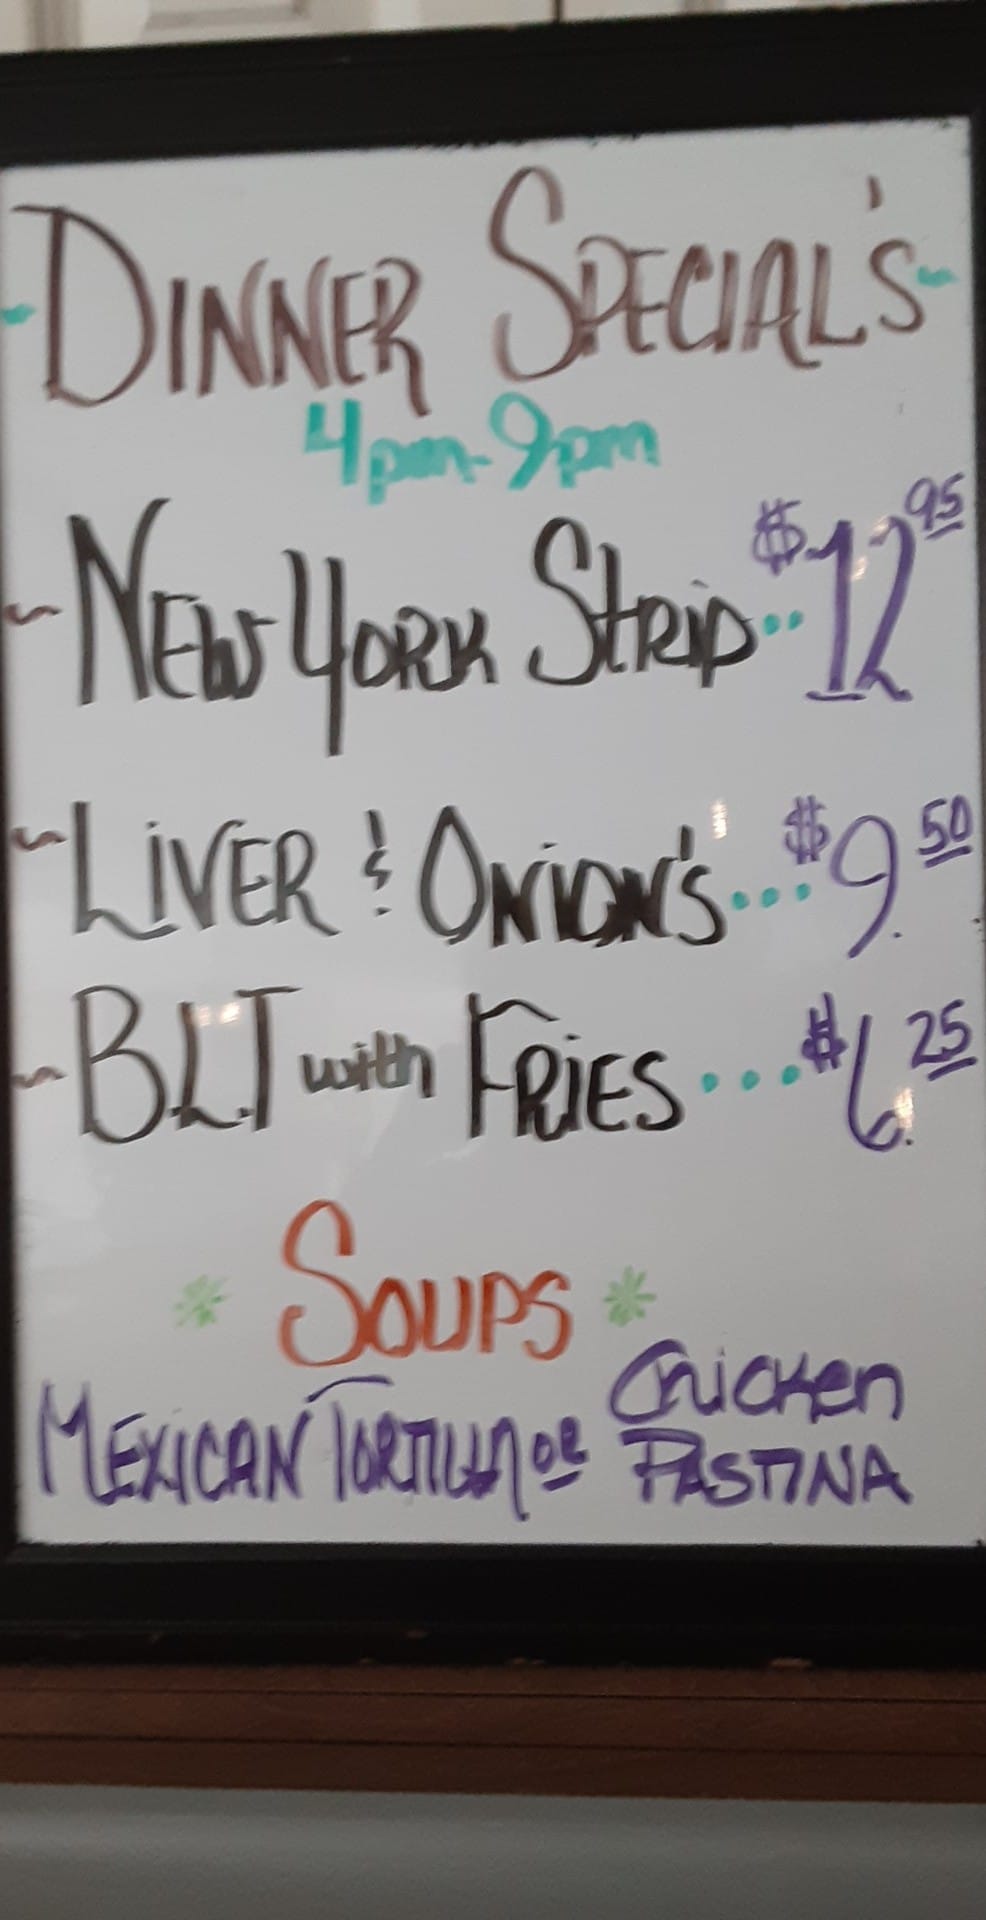 - DINNER SPECIAL'S -
4pm-9pm
~ NEW YORK STRIP.. $12 95
~ LIVER & ONION'S... $9. 50
~ B.L.T with FRIES... $6. 25
* SOUPS *
MEXICAN TORTILLA OR Chicken PASTINA